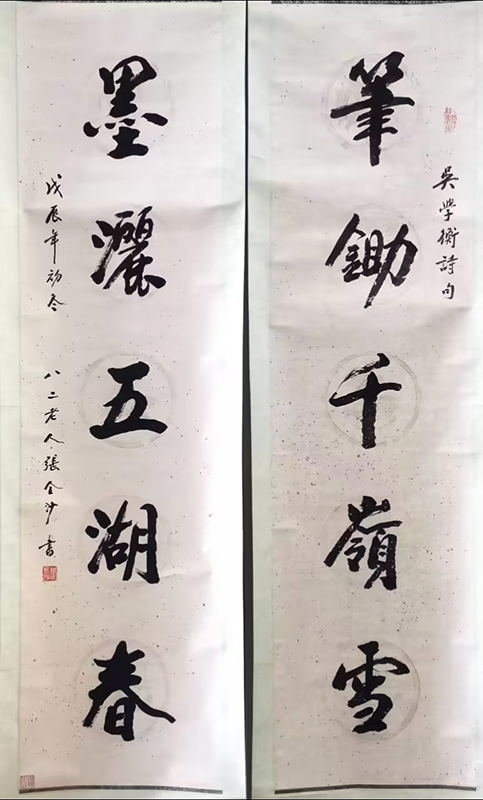 吳學衡詩句
筆鋤千嶺雪
墨灑五湖春
戊辰年初冬
八二老人張金沙書